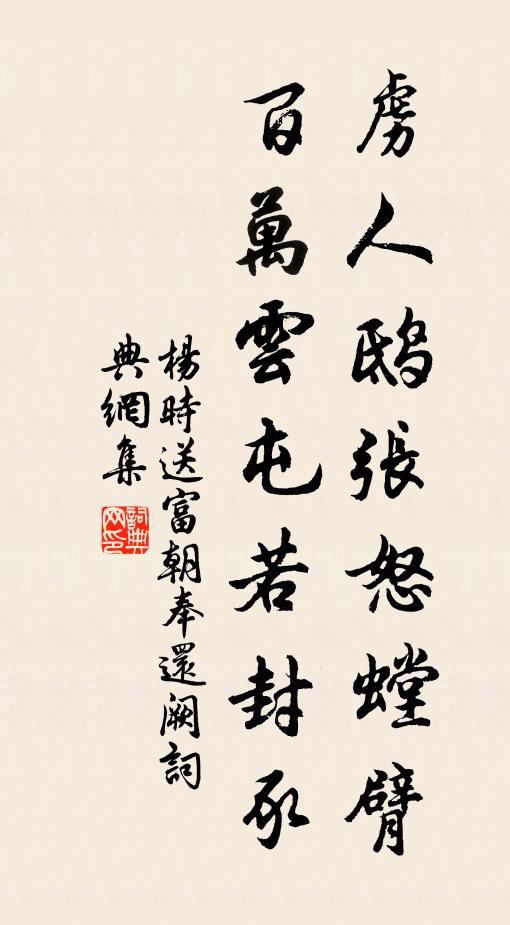 虜人鴟張怒螳臂
百萬雲屯若封豕
楊時送富朝奉還闕詞
典網集
詞典網印